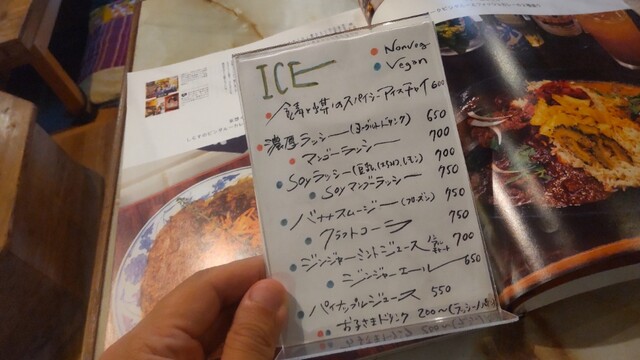 ICE
Nonveg
Vegan
スパイシーアイスチャイ 600
濃厚ラッシー(ヨーグルトドリンク) 650
マンゴーラッシー 700
Soyラッシー(豆乳, はちみつ, レモン) 700
Soyマンゴーラッシー 750
バナナスムージー(フローズン) 750
クラフトコーラ 750
ジンジャーミントジュース 700
ジンジャーエール 650
パイナップルジュース 550
お子さまドリンク 200〜(ラッシー